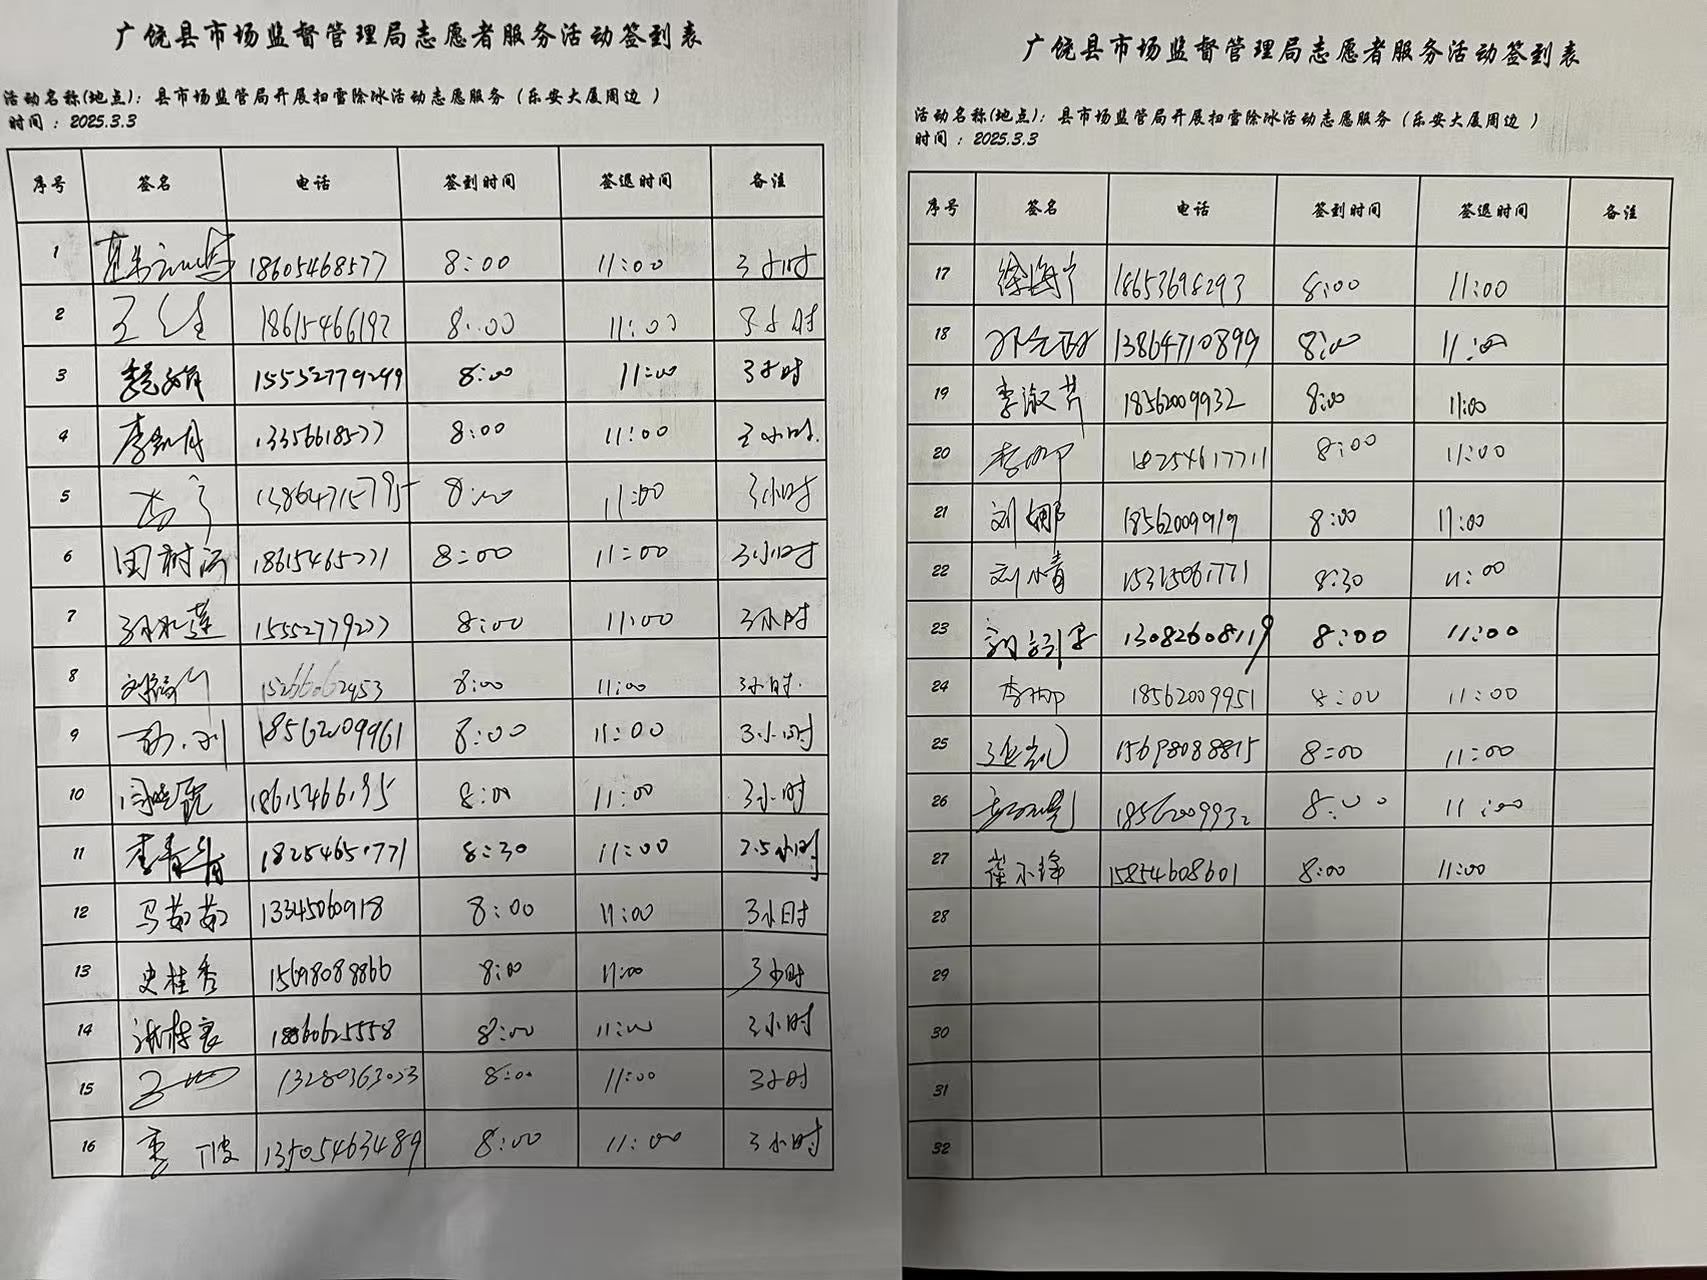 广饶县市场监督管理局志愿者服务活动签到表
活动名称(地点)：县市场监管局开展扫雪除冰活动志愿服务（乐安大厦周边 ）
时间：2025.3.3
序号 签名 电话 签到时间 签退时间 备注
1 18605468577 8:00 11:00 3小时
2 18615466192 8:00 11:00 3小时
3 15552779249 8:00 11:00 3小时
4 13356618577 8:00 11:00 3小时.
5 13864715795 8:00 11:00 3小时
6 田树江 18615465771 8:00 11:00 3小时
7 孙永莲 15552779277 8:00 11:00 3小时
8 15266062453 8:00 11:00 3小时.
9 18562009961 8:00 11:00 3小时
10 闫晓霞 18615466195 8:00 11:00 3小时
11 李青青 18254650771 8:30 11:00 2.5小时
12 马茹茹 13345060918 8:00 11:00 3小时
13 史桂秀 15698088866 8:00 11:00 3小时
14 8:00 11:00 3小时
15 13280363053 8:00 11:00 3小时
16 13505463489 8:00 11:00 3小时
广饶县市场监督管理局志愿者服务活动签到表
活动名称(地点)：县市场监管局开展扫雪除冰活动志愿服务（乐安大厦周边 ）
时间：2025.3.3
序号 签名 电话 签到时间 签退时间 备注
17 徐海宁 18653698293 8:00 11:00
18 13864710899 8:00 11:00
19 李淑芹 18562009932 8:00 11:00
20 李娜 18254617711 8:00 11:00
21 刘娜 18562009919 8:00 11:00
22 刘小青 15315061771 8:30 11:00
23 13082608119 8:00 11:00
24 李娜 18562009951 8:00 11:00
25 张凯 15698088815 8:00 11:00
26 18562009932 8:00 11:00
27 崔小锋 15854608601 8:00 11:00
28
29
30
31
32